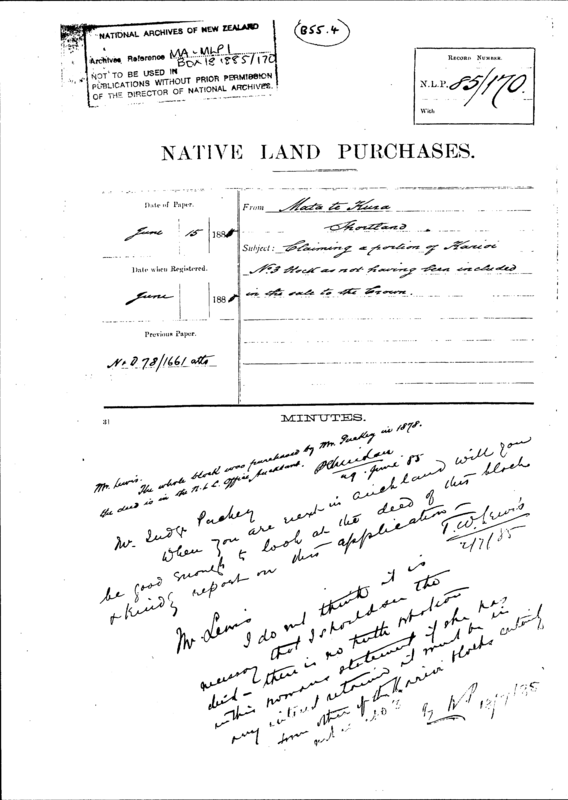 NATIONAL ARCHIVES OF NEW ZEALAND
Archives Reference MA-MLP1
Box 18 1885/170
NOT TO BE USED IN
PUBLICATIONS WITHOUT PRIOR PERMISSION
OF THE DIRECTOR OF NATIONAL ARCHIVES.
B55.4
RECORD NUMBER.
N.L.P. 85/170.
With
NATIVE LAND PURCHASES.
Date of Paper.
June 15 1885
Date when Registered.
June 1885
Previous Paper.
No D 78/1661 atts
From Mata te Kura
Shortland.
Subject: Claiming a portion of Karioi
No. 3 block as not having been included
in the sale to the Crown.
31
MINUTES.
Mr. Lewis.
The whole block was purchased by Mr. Puckey in 1878.
the deed is in the N.L.C. Office, Auckland.
PSheridan
29 June 85
Mr. Judge Puckey
When you are next in Auckland will you
be good enough to look at the deed of this block
& kindly report on this application —
T.W. Lewis
2/7/85
Mr Lewis
I do not think it is
necessary that I should see the
deed — there is no truth whatever
in this womans statement if she has
any interest retained it must be in
some other of the Karioi blocks certainly
not in No 3
13/7/85